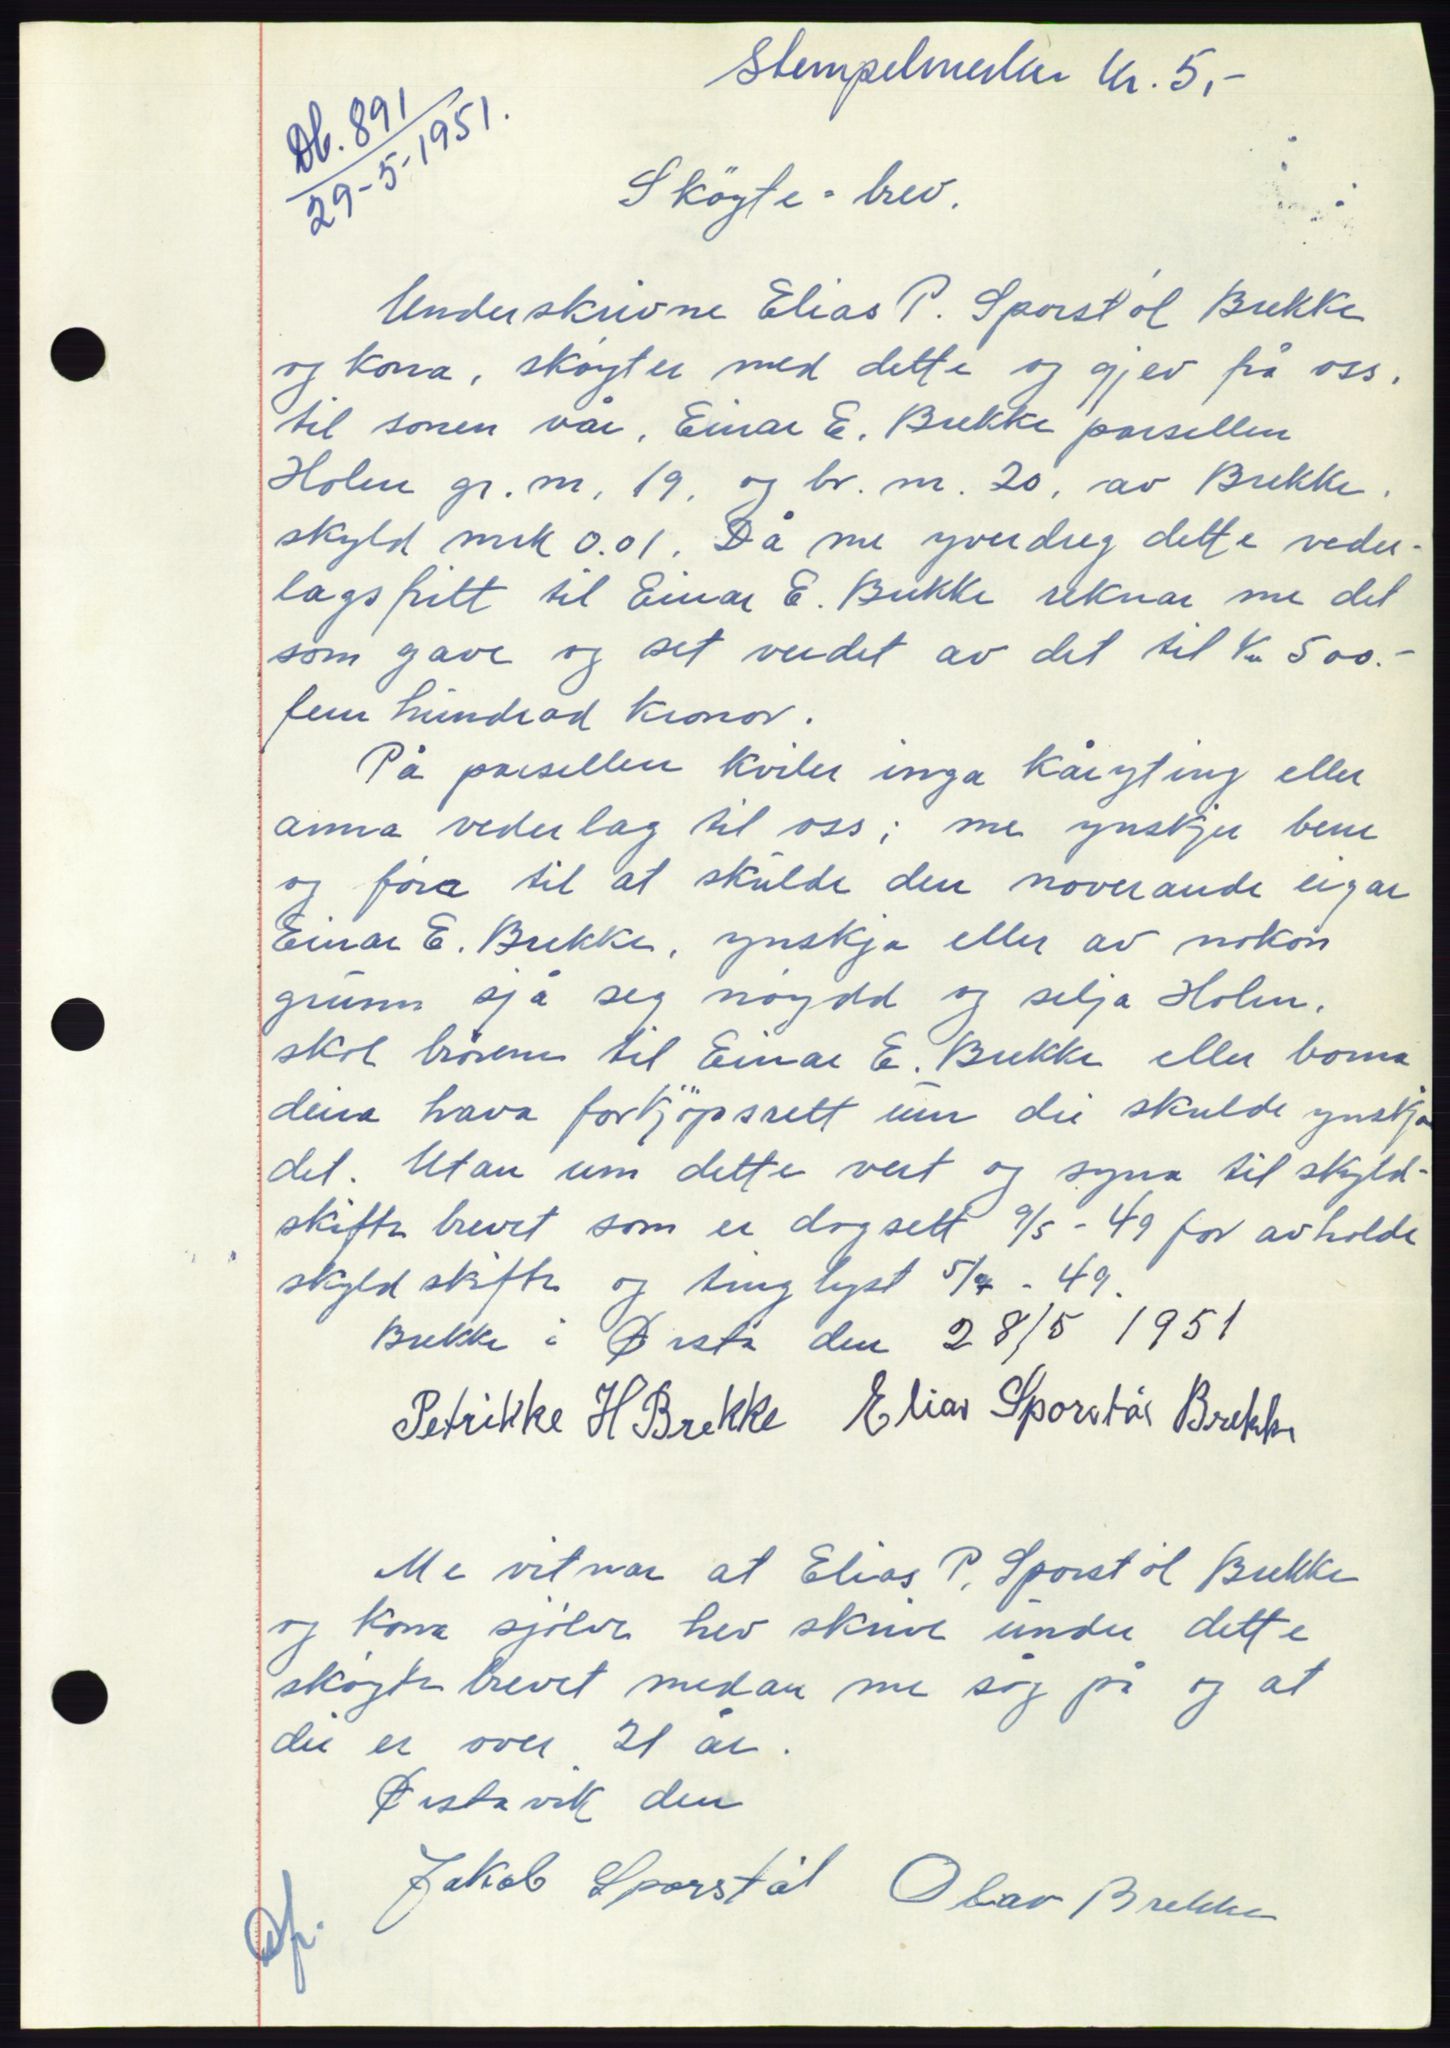 Stempelmerker kr. 5,-
Db. 891
29-5-1951.
Sköyte-brev.
Underskrivne Elias P. Sporstöl Brekke
og kona, sköyter med dette og gjev frå oss,
til sonen vår, Einar E. Brekke parsellen
Holen gr. nr. 19, og br. nr. 20, av Brekke,
skyld mrk 0.01. Då me yverdreg dette veder-
lagsfritt til Einar E. Brekke reknar me det
som gave og set verdet av det til kr 500.-
fem hundrad kronor.
På parsellen kviler inga kåryting eller
anna vederlag til oss; me ynskjer berre
og föra til at skulde den noverande eigar
Einar E. Brekke, ynskja eller av nokon
grunn sjå seg nöydd og selja Holen,
skol brörene til Einar E. Brekke eller borna
deira hava forkjöpsrett um dei skulde ynskja
det. Utan um dette vert og syna til skyld-
skifte brevet som er dagsett 9/5 - 49 for avholde
skyldskifte og tinglyst 5/7 - 49.
Brekke i Ørsta den 28/5 1951
Petrikke H Brekke Elias Sporstöl Brekke
Me vitnar at Elias P. Sporstöl Brekke
og kona sjölve hev skrive under dette
sköyte brevet medan me såg på og at
dei er over 21 år.
Ørstavik den
Jakob Sporstöl Olav Brekke